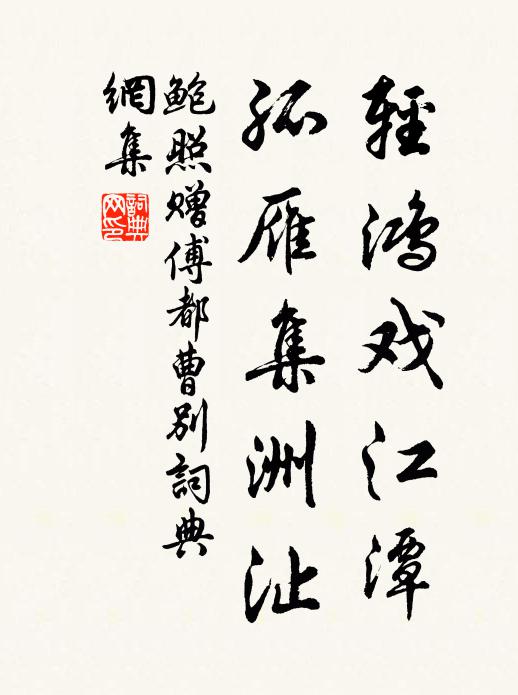 輕鴻戏江潭
孤雁集洲沚
鲍照赠傅都曹别詞典
網集
詞典
网印